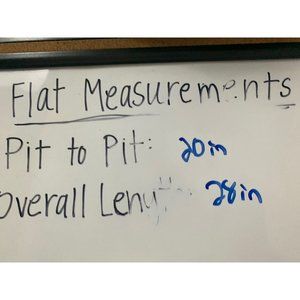 Flat Measurements
Pit to Pit: 20in
Overall Length: 28in